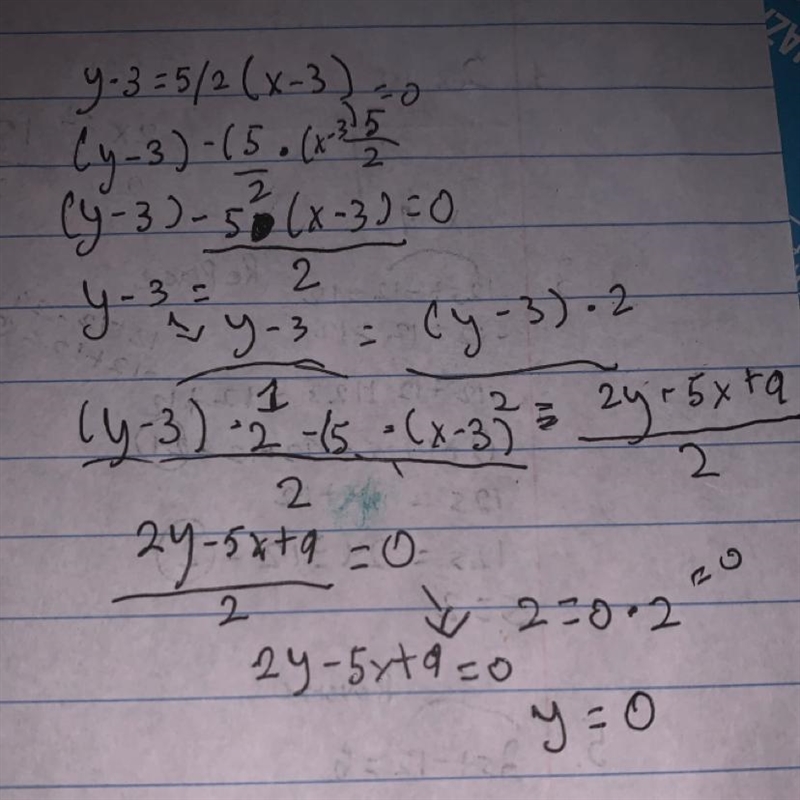 y-3 = 5/2 (x-3) = 0
(y-3) - (5/2 · (x-3) 5/2
(y-3) - 5 (x-3) = 0
2
y-3 =
y-3 = (y-3) · 2
1 2
(y-3) · 2 - (5 · (x-3) = 2y - 5x + 9
2 2
2y - 5x + 9 = 0
2
2 = 0 · 2 = 0
2y - 5x + 9 = 0
y = 0